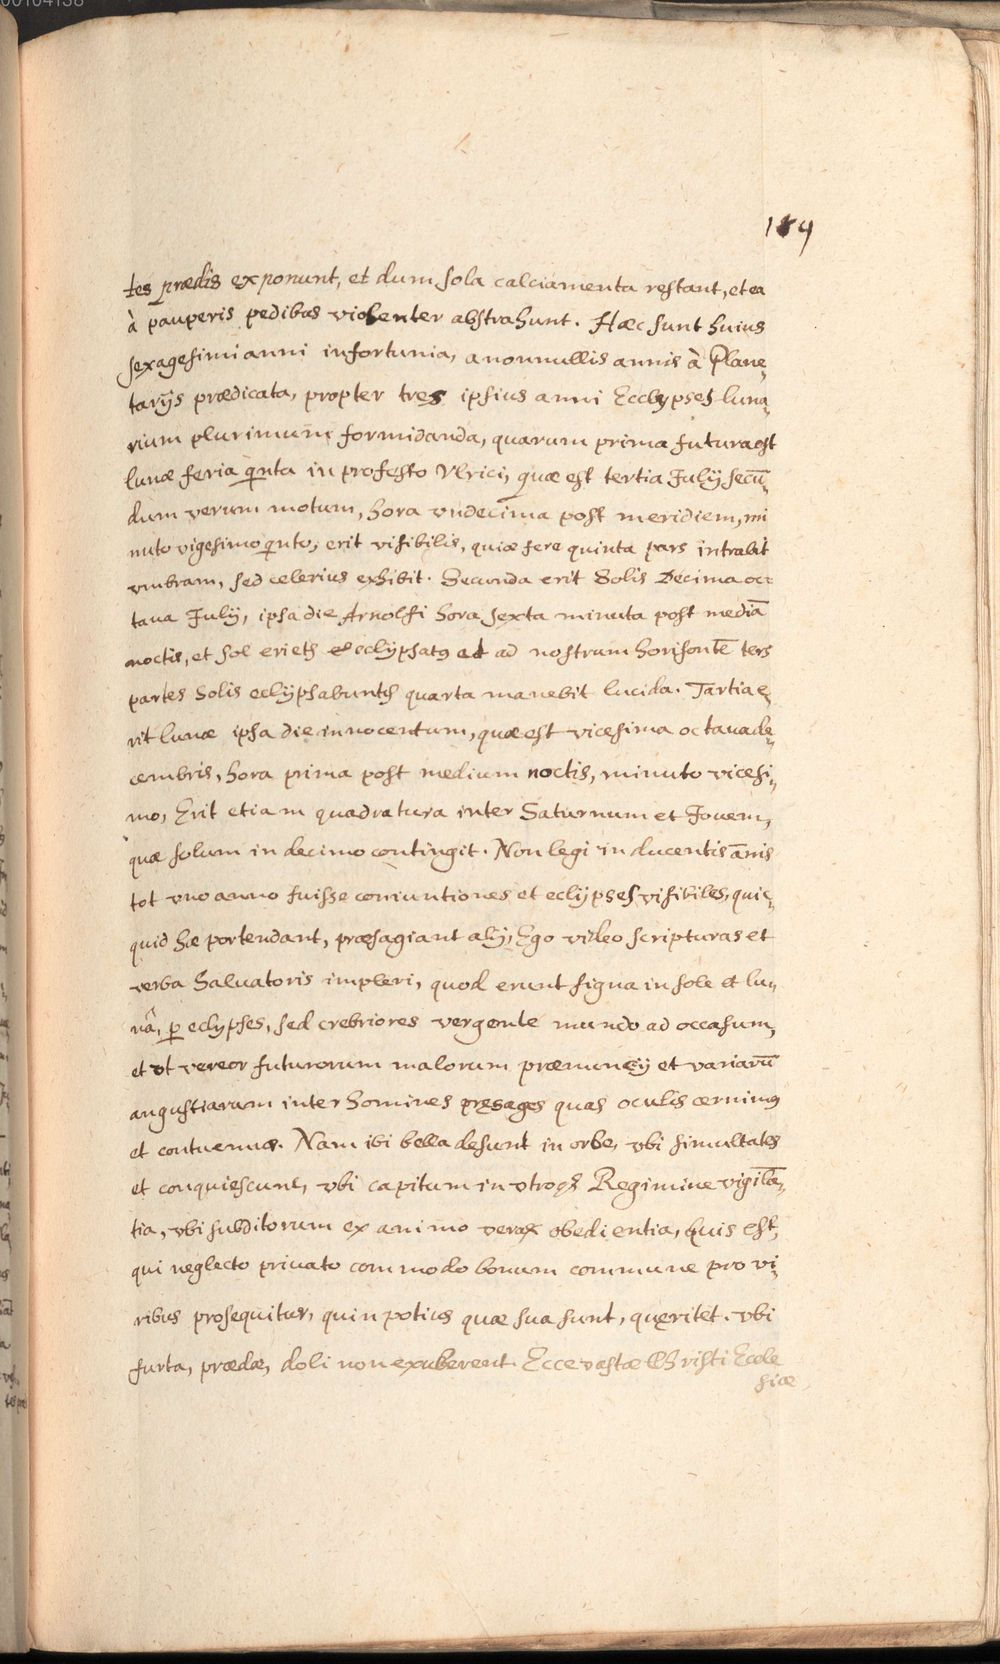 00104138
189
tes prædis exponunt, et dum sola calciamenta restant, et ea
à pauperis pedibus violenter abstrahunt. Hæc sunt huius
sexagesimi anni infortunia, a nonnullis annis à Plane„
tarijs prædicata, propter tres ipsius anni Ecclypses luna„
rium plurimum formidanda, quarum prima futura est
lunæ feria q̄nta in profesto Vlrici, quæ est tertia Julij secū„
dum verum motum, hora vndecima post meridiem, mi
nuto vigesimo q̄nto, erit visibilis, quiæ fere quinta pars intrabit
vmbram, sed celerius exhibit. Secunda erit Solis Decima oc:
taua Julij, ipsa die Arnolfi hora sexta minuta post mediā
noctis, et sol erieth eclypsatꝯ ad nostrum horisontē ters
partes Solis eclypsabunth quarta manebit lucida. Tartia e„
rit lunæ ipsa die innocentum, quæ est vicesima octaua de„
cembris, hora prima post medium noctis, minuto vicesi„
mo, Erit etiam quadratura inter Saturnum et Jouem,
quæ solum in decimo contingit. Non legi in ducentis ānis
tot vno anno fuisse coniuntiones et eclypses visibiles, quic„
quid hæ portendant, præsagiant alij, Ego video scripturas et
verba Saluatoris impleri, quod erunt signa in sole et lu„
nâ, ꝑ eclypses, sed crebriores vergente mundo ad occasum,
et vt vereor futurorum malorum præmuncij et variarū
angustiarum inter homines pręsages quas oculis cernimꝯ
et contuemur. Nam ibi bella desunt in orbe, vbi simultates
et conquiescunt, vbi capitum in vtroqꝫ Regimine vigilā„
tia, vbi subditorum ex animo verax obedientia, quis est,
qui neglecto priuato commodo bonum commune pro vi„
ribus prosequitur, quin potius quæ sua sunt, quęritet. vbi
furta, prædæ, doli non exuberent. Ecce vastæ Christi Eccle
siæ